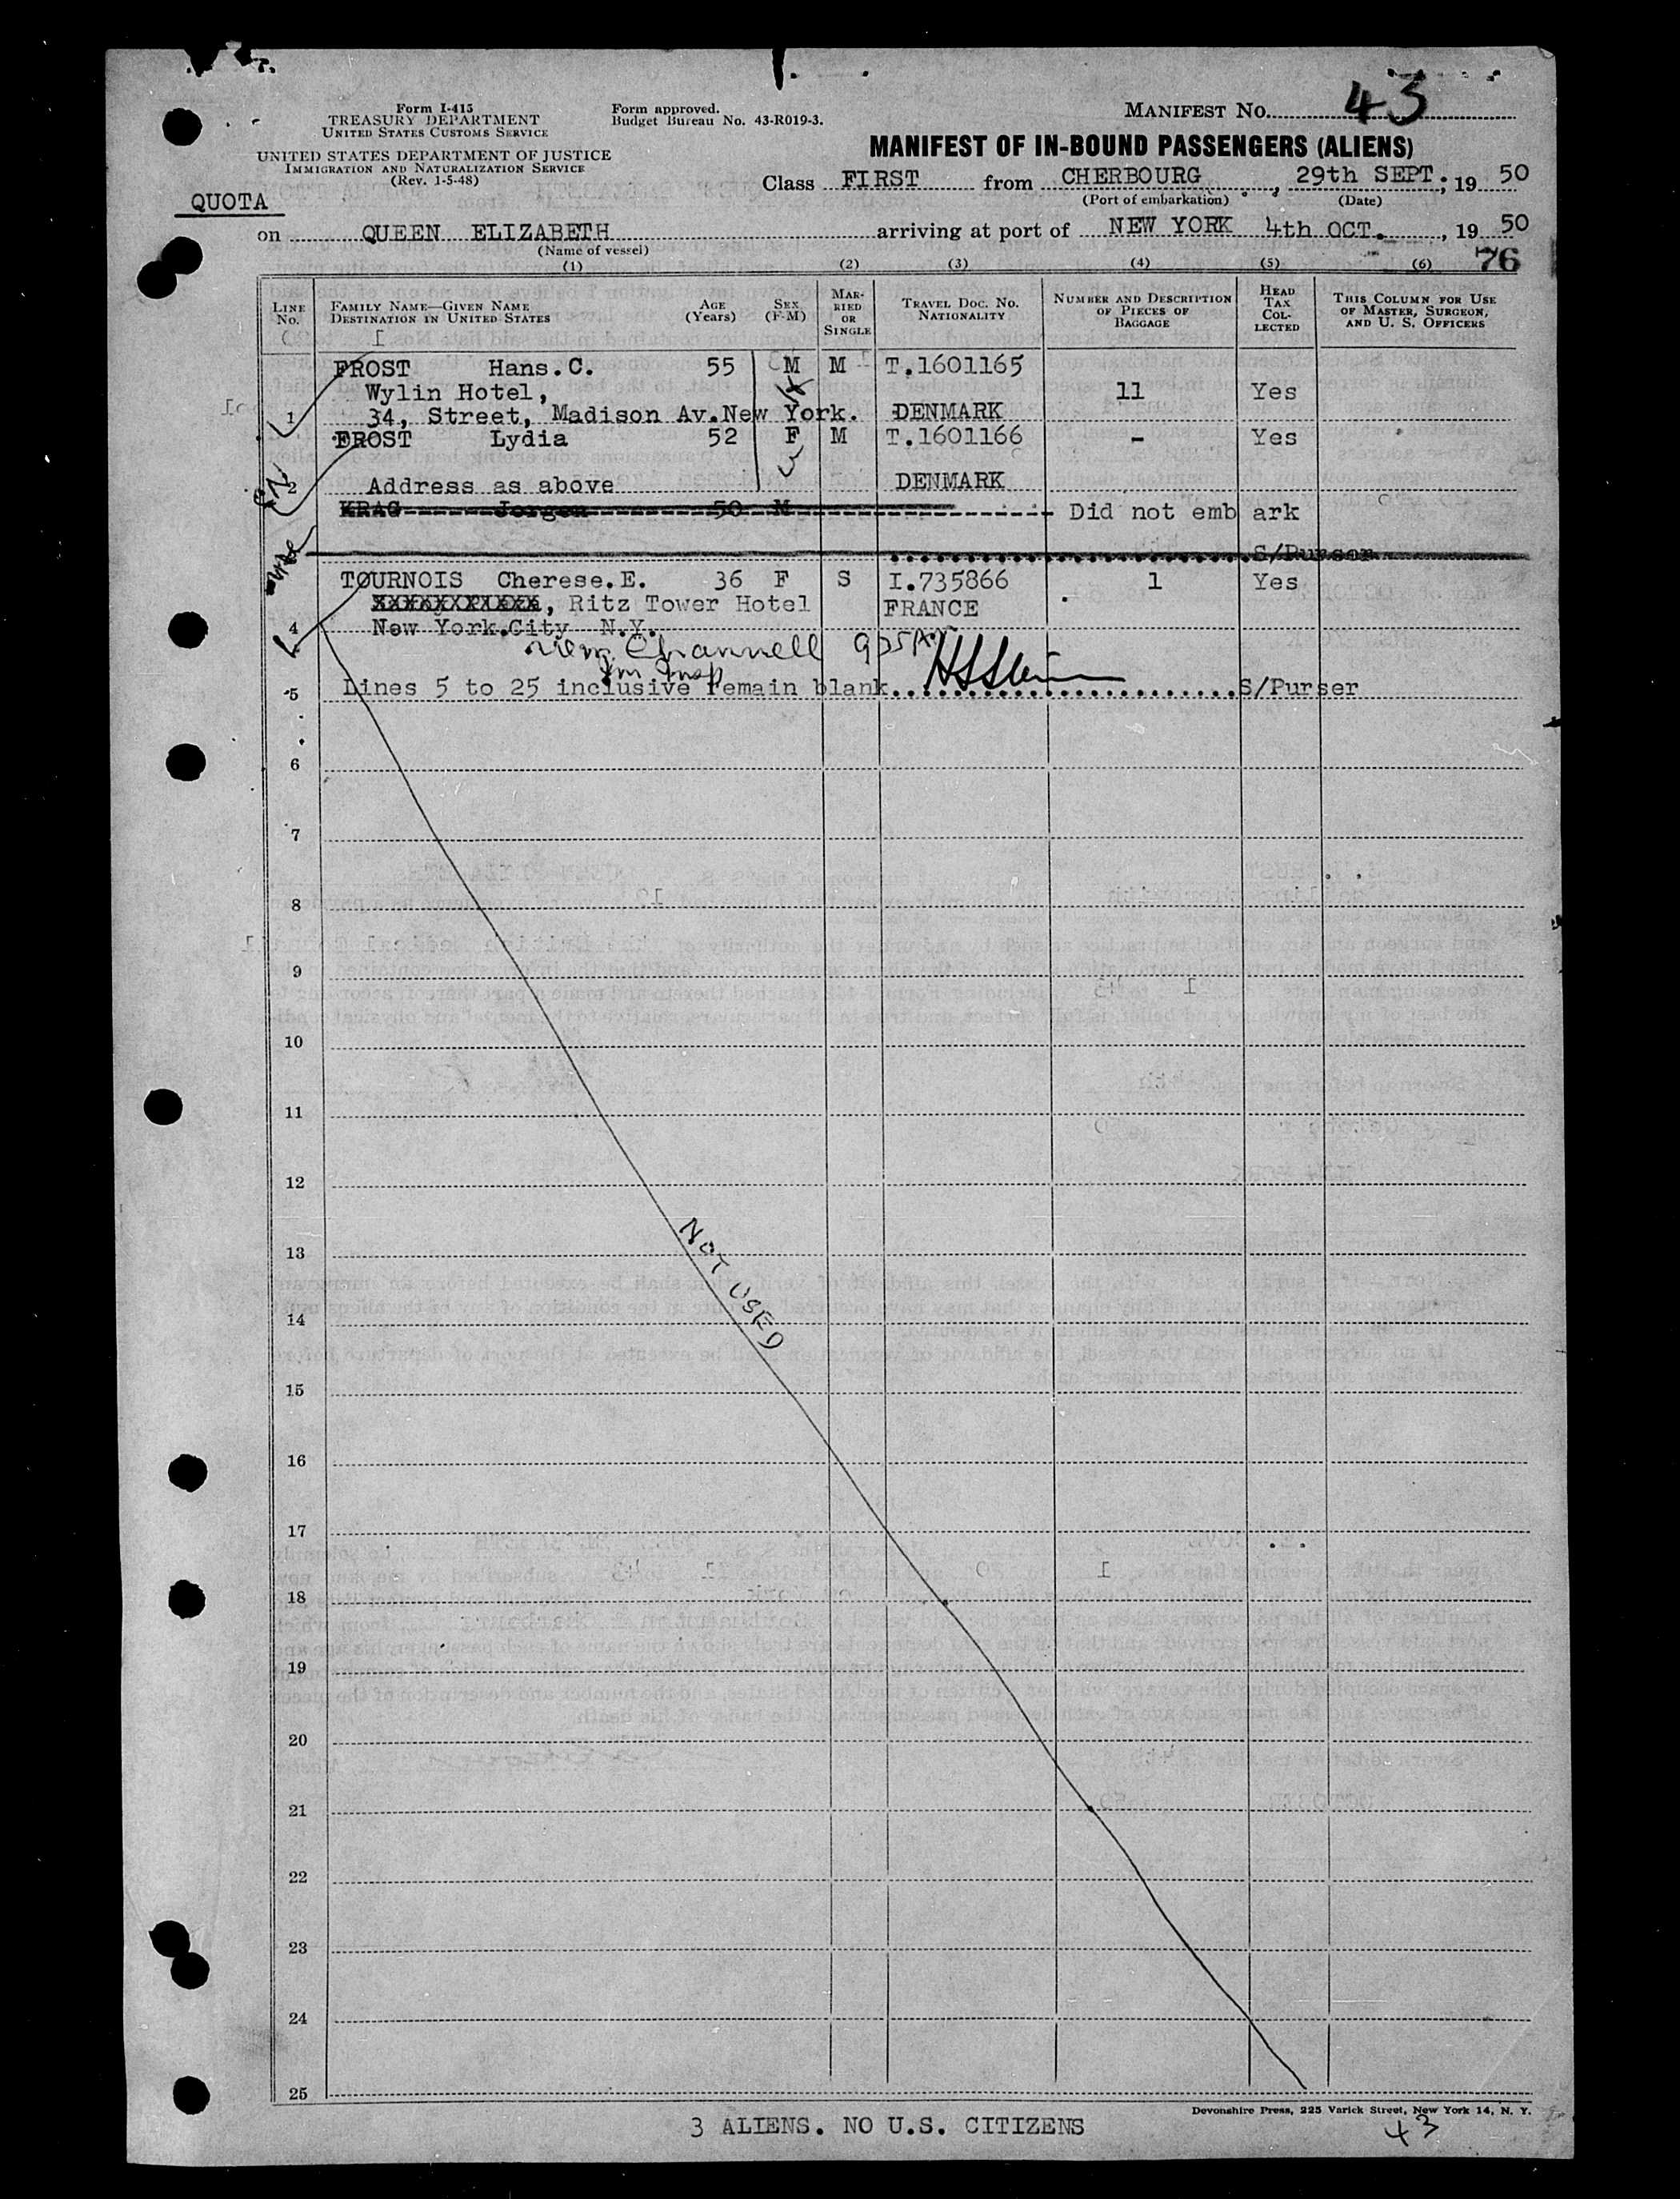 Form I-415
TREASURY DEPARTMENT
UNITED STATES CUSTOMS SERVICE
UNITED STATES DEPARTMENT OF JUSTICE
IMMIGRATION AND NATURALIZATION SERVICE
(Rev. 1-5-48)
Form approved.
Budget Bureau No. 43-R019-3.
MANIFEST NO. 43
MANIFEST OF IN-BOUND PASSENGERS (ALIENS)
Class FIRST from CHERBOURG, 29th SEPT., 19 50
(Port of embarkation) (Date)
QUOTA
on QUEEN ELIZABETH arriving at port of NEW YORK 4th OCT., 19 50
(Name of vessel)
76
(1) (2) (3) (4) (5) (6)
LINE NO. FAMILY NAME—GIVEN NAME DESTINATION IN UNITED STATES AGE (Years) SEX (F-M) MARRIED OR SINGLE TRAVEL DOC. NO. NATIONALITY NUMBER AND DESCRIPTION OF PIECES OF BAGGAGE HEAD TAX COLLECTED THIS COLUMN FOR USE OF MASTER, SURGEON, AND U. S. OFFICERS
FROST Hans.C. 55 M M T.1601165
Wylin Hotel, 11 Yes
1 34, Street, Madison Av.New York. DENMARK
FROST Lydia 52 F M T.1601166 - Yes
2 Address as above DENMARK
KRAG Jorgen 50 M Did not emb ark
S/Purser
TOURNOIS Cherese.E. 36 F S I.735866 1 Yes
, Ritz Tower Hotel FRANCE
4 New York.City N.Y.
Channell 935 A
Lines 5 to 25 inclusive remain blank S/Purser
5
6
7
8
9
10
11
12
13
NOT USED
14
15
16
17
18
19
20
21
22
23
24
25
Devonshire Press, 225 Varick Street, New York 14, N. Y.
3 ALIENS. NO U.S. CITIZENS
43